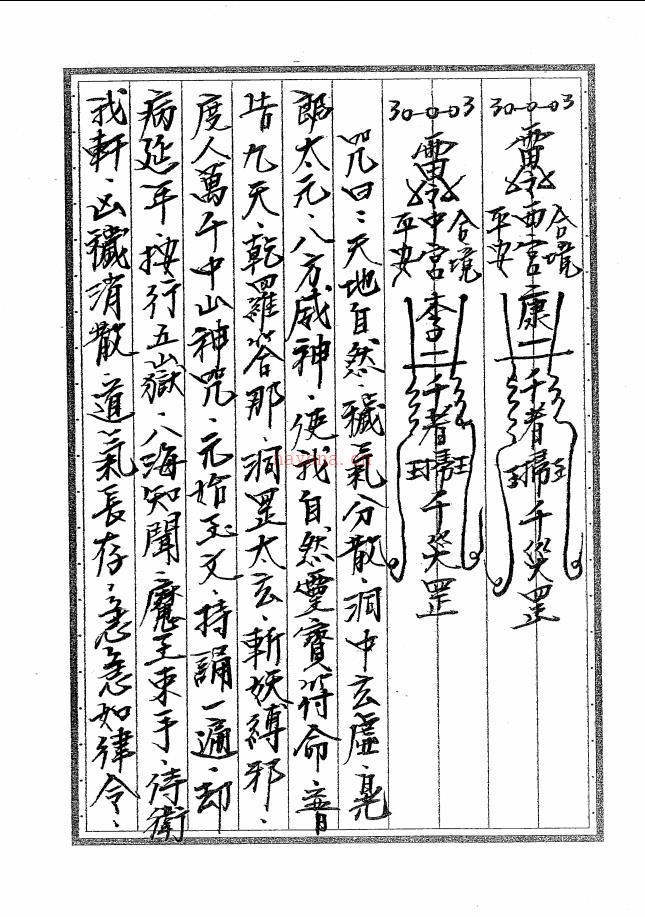 合境
靈西宮康二千者掃千災罡
平安
合境
靈中宮李二千者掃千災罡
平安
咒曰：天地自然、穢氣分散、洞中玄虛、晃
郎太元、八方威神、使我自然靈寶符命、普
告九天、乾羅答那、洞罡太玄、斬妖縛邪、
度人萬千中山神咒、元始玉文、持誦一遍、却
病延年、按行五嶽、八海知聞、魔王束手、侍衛
我軒、凶穢消散、道氣長存、急急如律令、